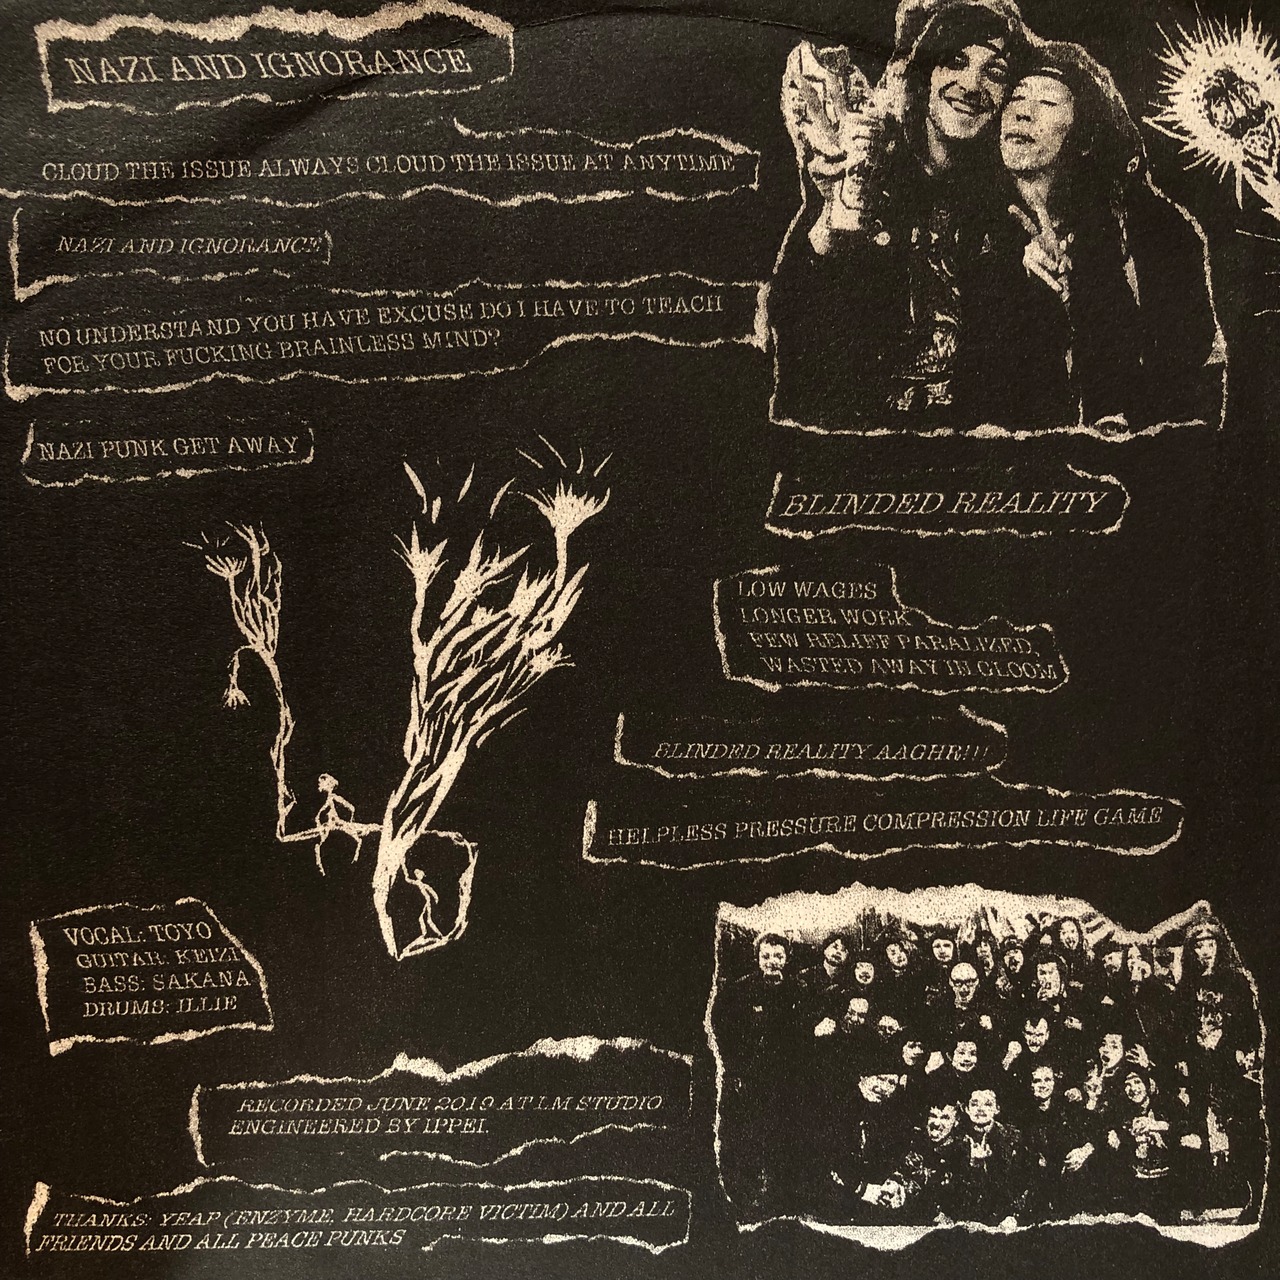 NAZI AND IGNORANCE
CLOUD THE ISSUE ALWAYS CLOUD THE ISSUE AT ANYTIME
NAZI AND IGNORANCE
NO UNDERSTAND YOU HAVE EXCUSE DO I HAVE TO TEACH
FOR YOUR FUCKING BRAINLESS MIND?
NAZI PUNK GET AWAY
BLINDED REALITY
LOW WAGES
LONGER WORK
FEW RELIEF PARALIZED,
WASTED AWAY IN GLOOM
BLINDED REALITY AAGHR!!!
HELPLESS PRESSURE COMPRESSION LIFE GAME
VOCAL: TOYO
GUITAR: KEIZI
BASS: SAKANA
DRUMS: ILLIE
RECORDED JUNE 2019 AT LM STUDIO
ENGINEERED BY IPPEI.
THANKS: YEAP (ENZYME, HARDCORE VICTIM) AND ALL
FRIENDS AND ALL PEACE PUNKS